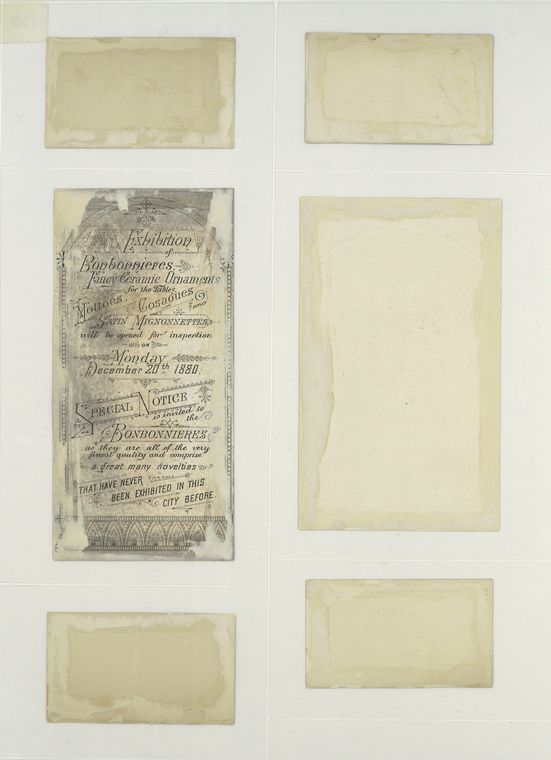 Exhibition
of
Bonbonnieres,
Fancy Ceramic Ornaments
for the Tables,
Cosaques
and
Satin Mignonnettes,
will be opened for inspection
ON
Monday
December 20th 1880.
Special Notice
is invited to
the
Bonbonnieres
as they are all of the very
finest quality and comprise
a great many novelties
THAT HAVE NEVER
BEEN EXHIBITED IN THIS
CITY BEFORE.